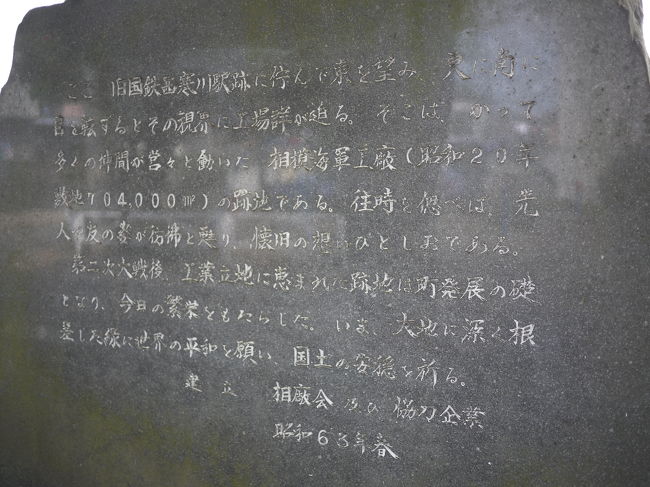 ここ 旧国鉄西寒川駅跡に佇んで東を望み、更に南に
目を転ずるとその視界に工場群が迫る。そこは、かつて
多くの仲間が営々と働いた 相模海軍工廠(昭和20年
敷地704,000㎡)の跡地である。往時を偲べば、先
人や友の姿が彷彿と甦り、懐旧の想いひとしおである。
第二次大戦後、工業立地に恵まれた跡地は町発展の礎
となり、今日の繁栄をもたらした。いま、大地に深く根
差した緑に世界の平和を願い、国土の安穏を祈る。
建立 相廠会及び協力企業
昭和63年春